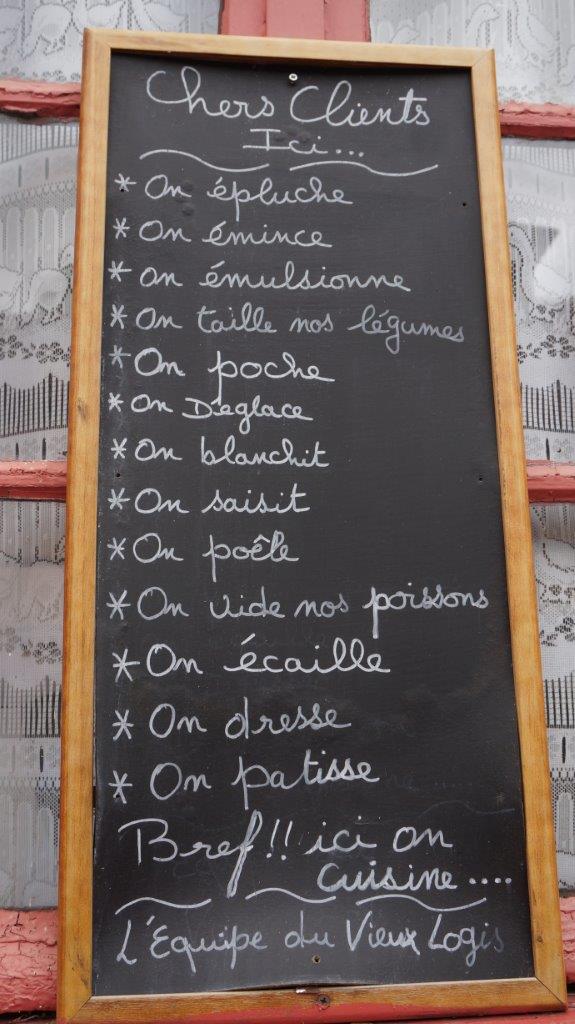 Chers Clients
Ici...
* On épluche
* On émince
* On émulsionne
* On taille nos légumes
* On poche
* On Déglace
* On blanchit
* On saisit
* On poêle
* On vide nos poissons
* On écaille
* On dresse
* On patisse
Bref!! ici on
cuisine....
L'Equipe du Vieux Logis